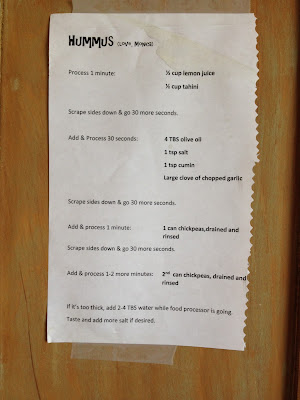 HUMMUS (LOVE,
Process 1 minute: ½ cup lemon juice
½ cup tahini
Scrape sides down & go 30 more seconds.
Add & Process 30 seconds: 4 TBS olive oil
1 tsp salt
1 tsp cumin
Large clove of chopped garlic
Scrape sides down & go 30 more seconds.
Add & process 1 minute: 1 can chickpeas,drained and
rinsed
Scrape sides down & go 30 more seconds.
Add & process 1-2 more minutes: 2nd can chickpeas, drained and
rinsed
If it's too thick, add 2-4 TBS water while food processor is going.
Taste and add more salt if desired.